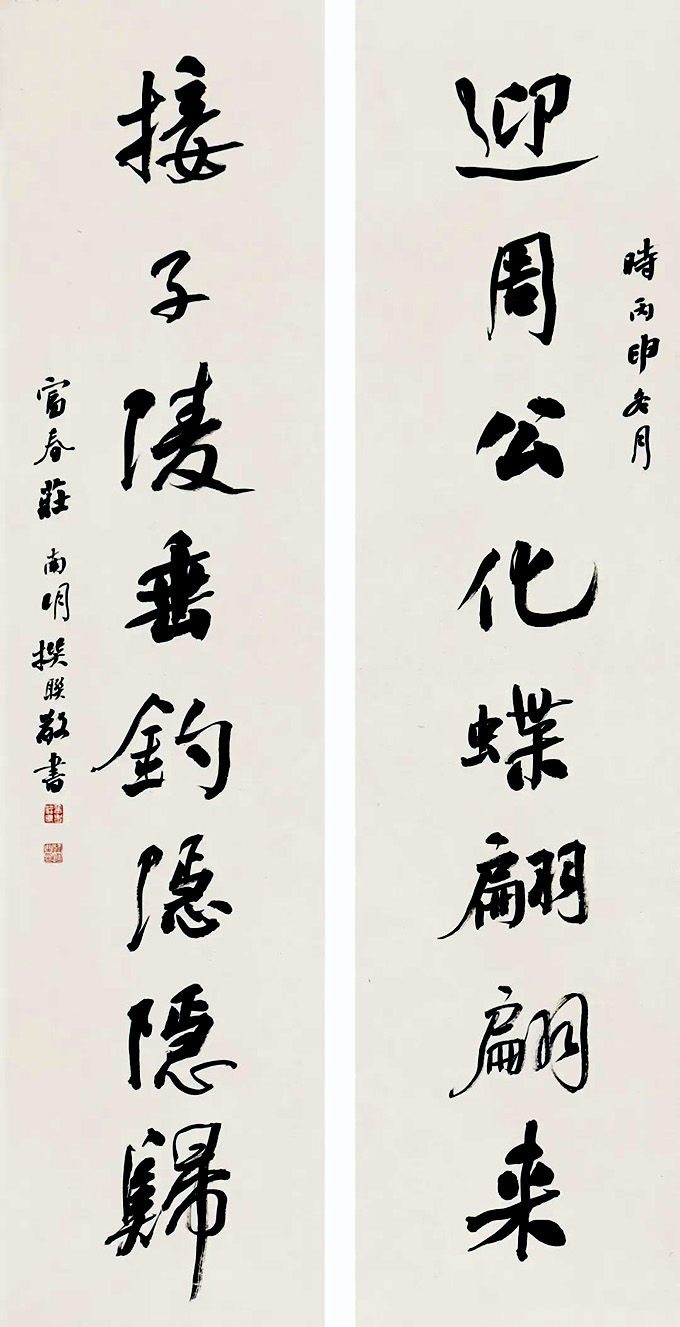 時丙申冬月
迎周公化蝶翩翩来
接子陵垂釣隐隐歸
富春莊 南明撰联敬書